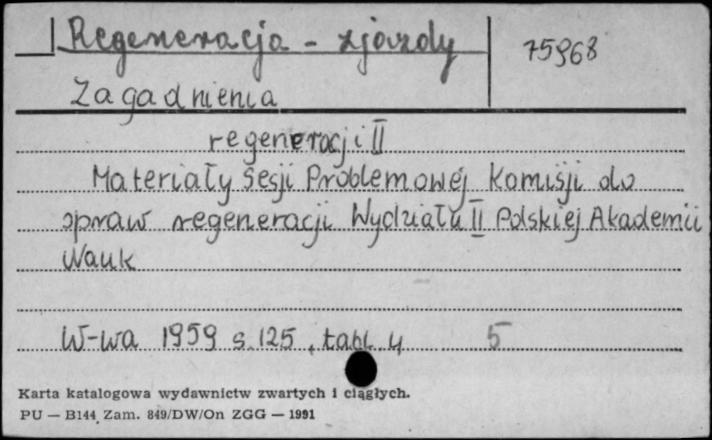 Regeneracja - zjazdy
75968
Zagadnienia
regeneracji II
Materiały Sesji Problemowej Komisji do
spraw regeneracji Wydziału II Polskiej Akademii
Nauk
W-wa 1959 s. 125, tabl. 4 5
Karta katalogowa wydawnictw zwartych i ciągłych.
PU — B144 Zam. 849/DW/On ZGG — 1991